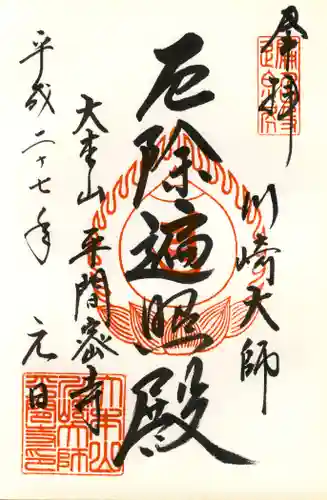 奉拝
川崎大師
厄除遍照殿
大本山 平間密寺
平成二十七年 元日